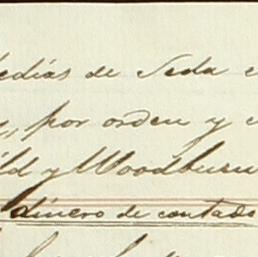 medias de Seda
por orden y
y Woodburn
dinero de contado